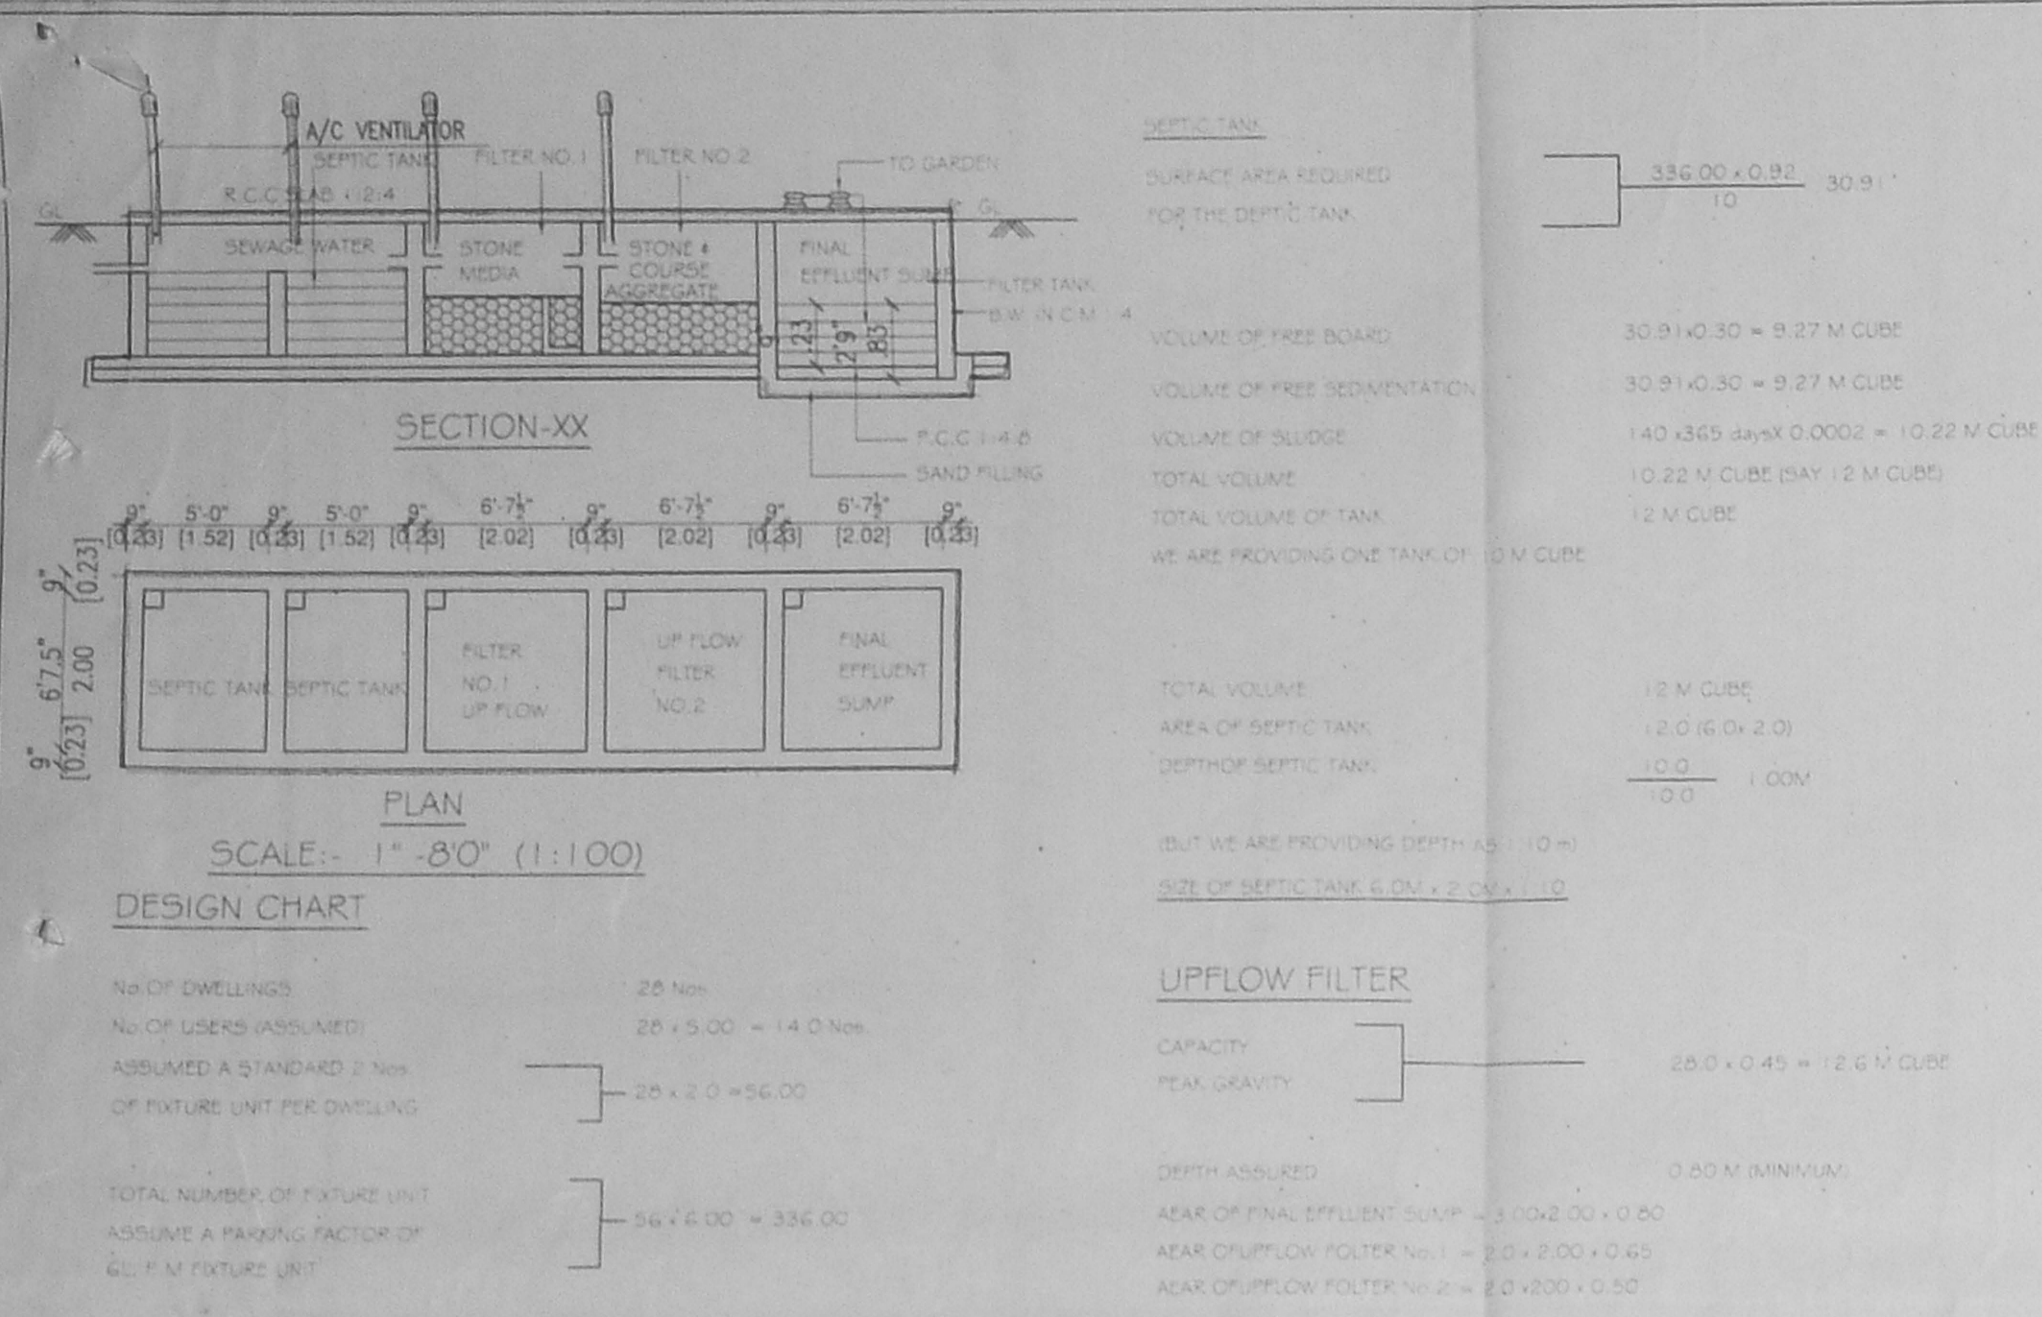 A/C VENTILATOR
SEPTIC TANK
FILTER NO.1
FILTER NO.2
TO GARDEN
R.C.C SLAB 1:2:4
GL
GL
SEWAGE WATER
STONE
MEDIA
STONE &
COURSE
AGGREGATE
FINAL
EFFLUENT SUMP
FILTER TANK
B.W. IN C.M 1:4
9"
.23
2'9"
.83
SECTION-XX
P.C.C 1:4:8
SAND FILLING
9" 5'-0" 9" 5'-0" 9" 6'-7½" 9" 6'-7½" 9" 6'-7½" 9"
[0.23] [1.52] [0.23] [1.52] [0.23] [2.02] [0.23] [2.02] [0.23] [2.02] [0.23]
9" 6'7.5" 9"
[0.23] 2.00 [0.23]
SEPTIC TANK
SEPTIC TANK
FILTER
NO.1
UP FLOW
UP FLOW
FILTER
NO.2
FINAL
EFFLUENT
SUMP
PLAN
SCALE:- 1" -8'0" (1:100)
DESIGN CHART
No.OF DWELLINGS 28 Nos.
No.OF USERS (ASSUMED) 28 x 5.00 = 14.0 Nos.
ASSUMED A STANDARD 2 Nos.
OF FIXTURE UNIT PER DWELLING
28 x 2.0 =56.00
TOTAL NUMBER OF FIXTURE UNIT
ASSUME A PARKING FACTOR OF
GL. P.M FIXTURE UNIT
56 x 6.00 = 336.00
SEPTIC TANK
SURFACE AREA REQUIRED
FOR THE DEPTIC TANK
336.00 x 0.92
10
30.91
VOLUME OF FREE BOARD 30.91x0.30 = 9.27 M CUBE
VOLUME OF FREE SEDIMENTATION 30.91x0.30 = 9.27 M CUBE
VOLUME OF SLUDGE 140 x365 daysX 0.0002 = 10.22 M CUBE
TOTAL VOLUME 10.22 M CUBE (SAY 12 M CUBE)
TOTAL VOLUME OF TANK 12 M CUBE
WE ARE PROVIDING ONE TANK OF 10 M CUBE
TOTAL VOLUME 12 M CUBE
AREA OF SEPTIC TANK 12.0 (6.0x 2.0)
DEPTHOF SEPTIC TANK
10.0
10.0
1.00M
(BUT WE ARE PROVIDING DEPTH AS 1.10 m)
SIZE OF SEPTIC TANK 6.0M x 2.0M x 1.10
UPFLOW FILTER
CAPACITY
PEAK GRAVITY
28.0 x 0.45 = 12.6 M CUBE
DEPTH ASSURED 0.80 M (MINIMUM)
AEAR OF FINAL EFFLUENT SUMP = 3.00x2.00 x 0.80
AEAR OFUPFLOW FOLTER No.1 = 2.0 x 2.00 x 0.65
AEAR OFUPFLOW FOLTER No.2 = 2.0 x200 x 0.50